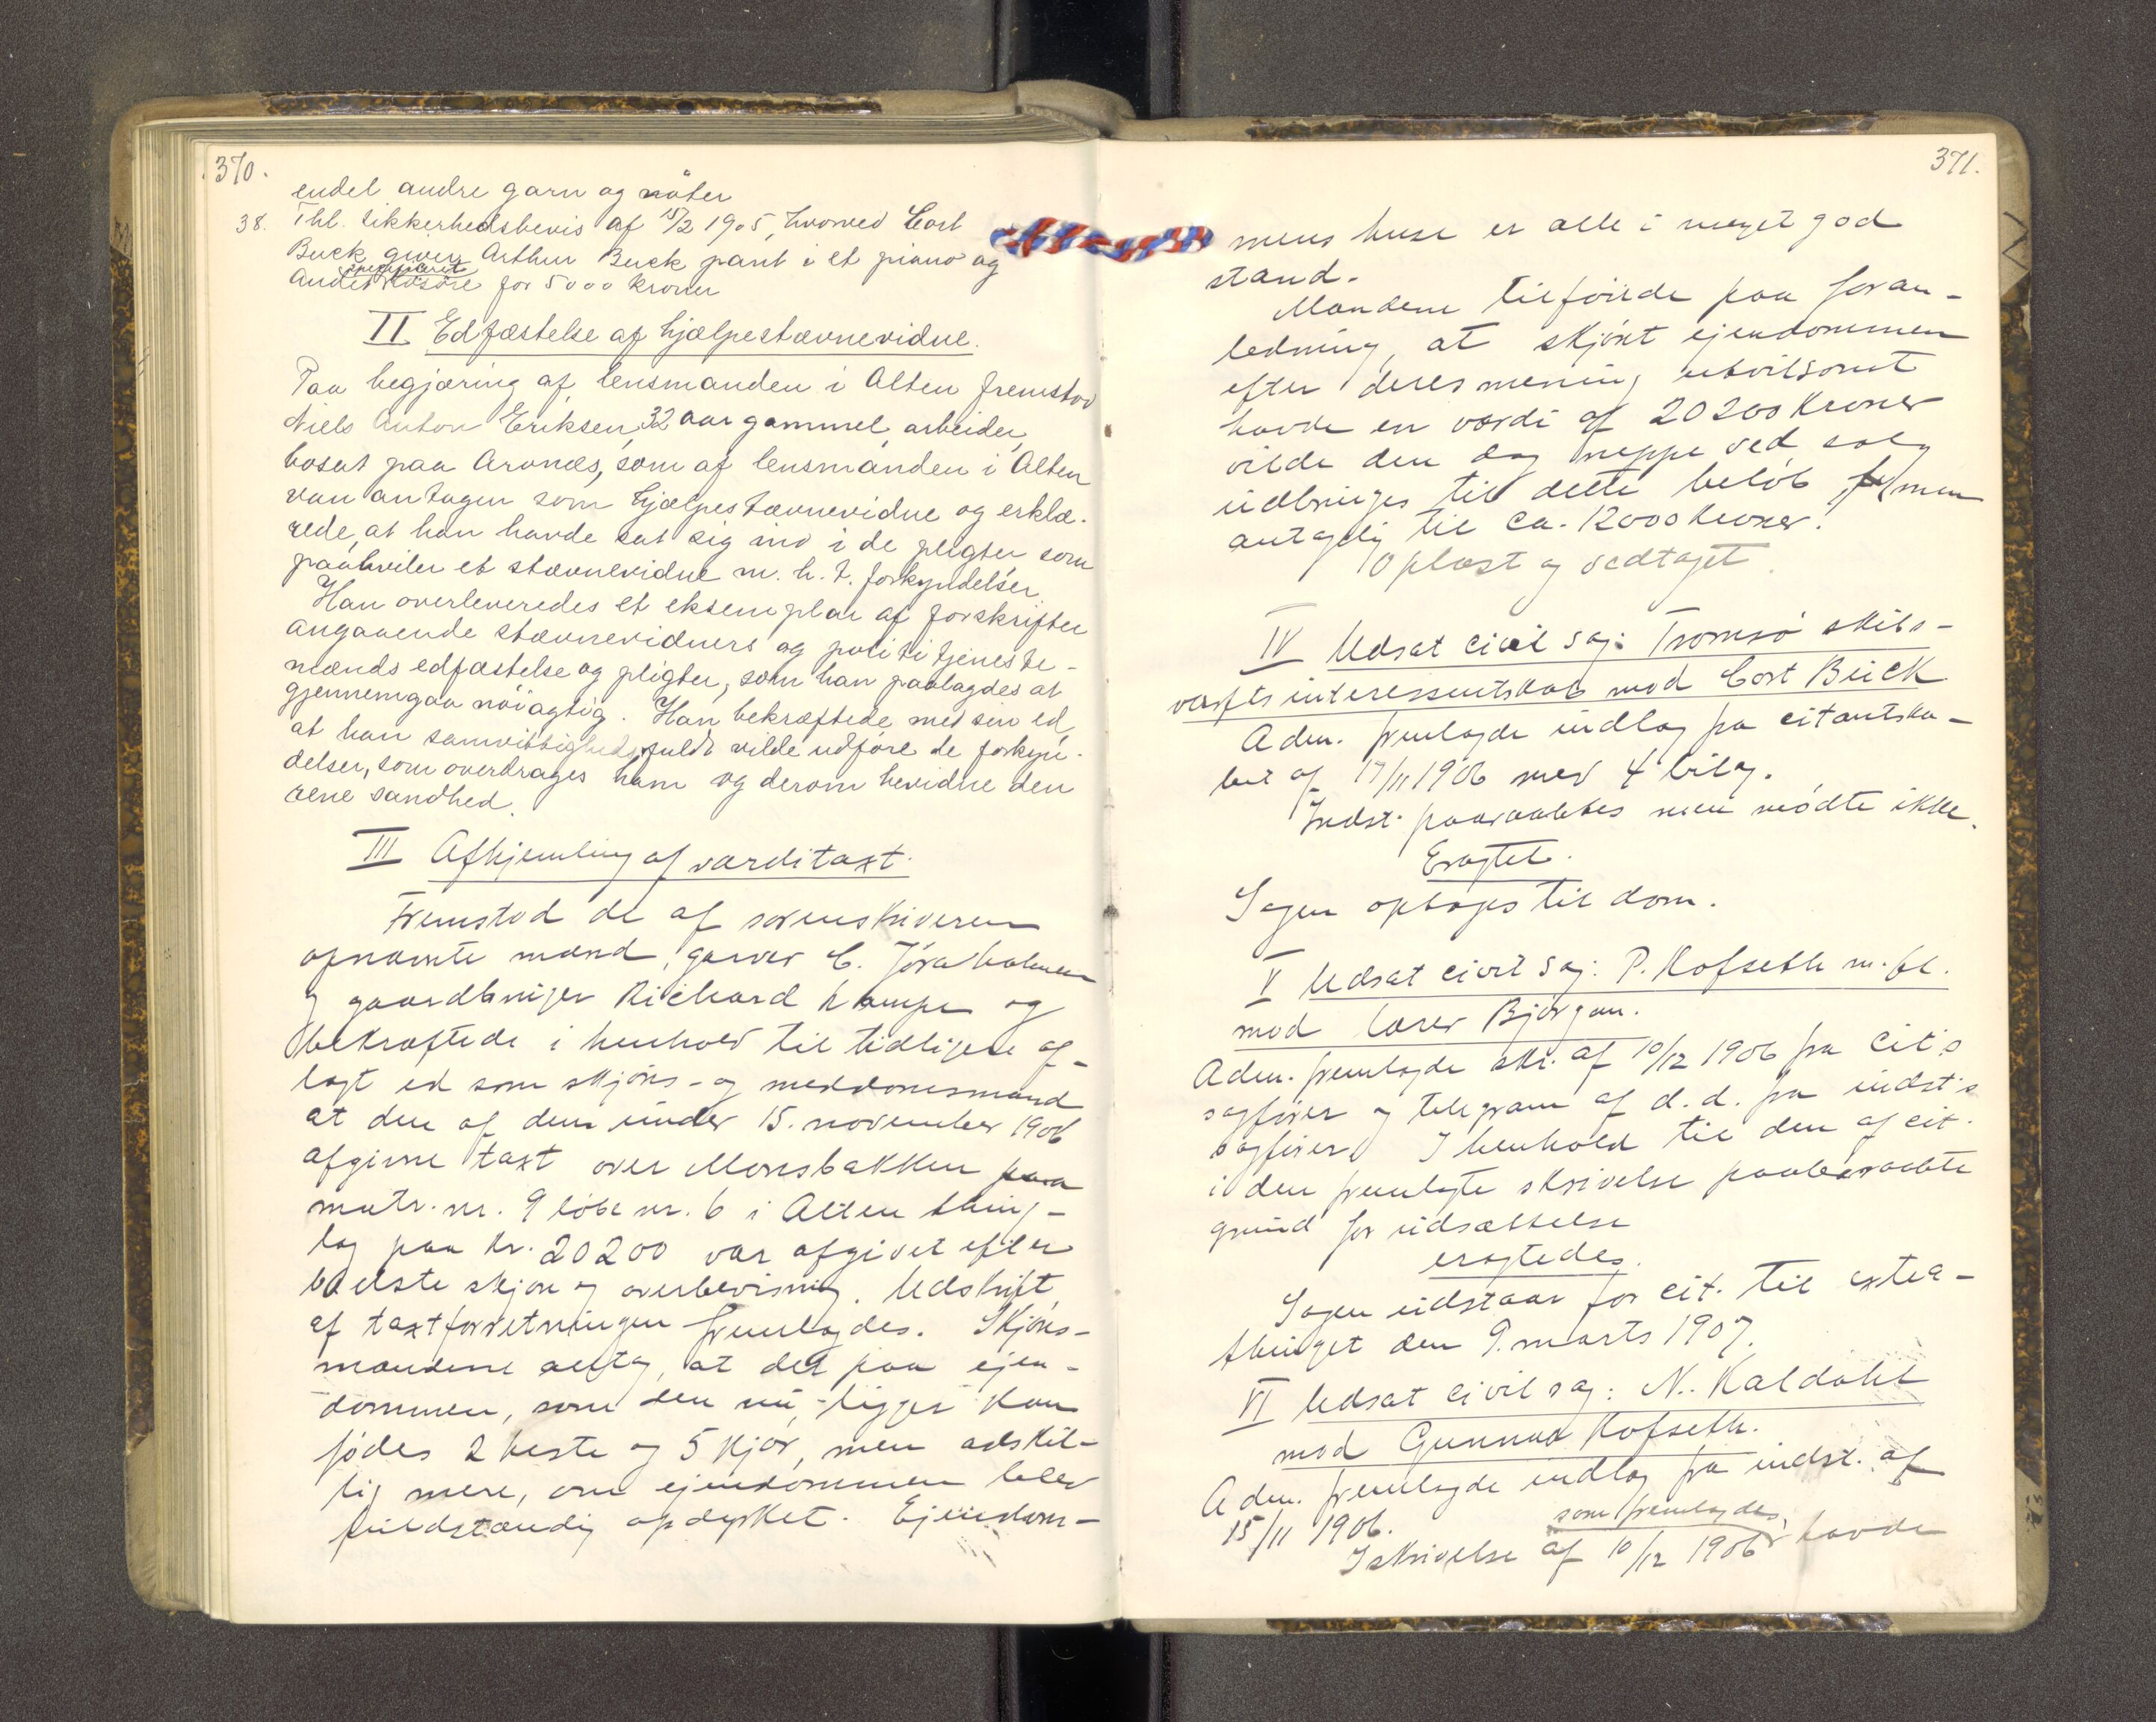 370.
endel andre garn og nøter
38. Thl. sikkerhedsbevis af 15/2 1905, hvorved Cort
Buck giver Arthur Buck pant i et piano og
specificeret
andet løsøre for 5000 kroner
II Edfæstelse af hjælpestævnevidne.
Paa begjæring af lensmanden i Alten fremstod
Niels Anton Eriksen, 32 aar gammel, arbeider,
bosat paa Aronæs, som af lensmanden i Alten
var antagen som hjælpestævnevidne og erklæ-
rede, at han havde sat sig ind i de pligter som
paahviler et stævnevidne m. h. t. forkyndelser.
Han overleveredes et eksemplar af forskrifter
angaaende stævnevidners og polititjeneste-
mænds edfæstelse og pligter, som han paalagdes at
gjennemgaa nøiagtig. Han bekræftede med sin ed,
at han samvittighedsfuldt vilde udføre de forkyn-
delser, som overdrages ham og derom bevidne den
rene sandhed.
III Afhjemling af værditaxt.
Fremstod de af sorenskriveren
opnævnte mænd, garver C. Jøraholmen
og gaardbruger Richard Kampe og
bekræftede i henhold til tidligere af-
lagt ed som skjøns- og meddomsmænd
at den af dem under 15. november 1906
afgivne taxt over Monsbakken
matr. nr. 9 løbe nr. 6 i Alten thing-
lag paa kr. 20200 var afgivet efter
bedste skjøn og overbevisning. Udskrift
af taxtforretningen fremlagdes. Skjøns-
mændene antog, at det paa ejen-
dommen, som den nu ligger kan
fødes 2 heste og 5 kjør, men adskil-
lig mere, om ejendommen blev
fuldstændig opdyrket. Ejendom-
371.
mens huse er alle i meget god
stand.
Mændene tilføiede paa foran-
ledning, at skjønt ejendommen
efter deres mening utvilsomt
havde en værdi af 20200 kroner
vilde den dog neppe ved salg
udbringes til dette beløb, men
antagelig til ca. 12000 kroner.
Oplæst og vedtaget.
IV Udsat civil sag: Tromsø skibs-
værfts interessentskab mod Cort Buck
Adm. fremlagde indlæg fra citantska-
bet af 17/11 1906 med 4 bilag.
Indst. paaraabtes men mødte ikke.
Eragtet.
Sagen optages til dom.
V Udsat civil sag: P. Kofseth m. fl.
mod lærer Bjørgan.
Adm. fremlagde skr. af 10/12 1906 fra cit's
sagfører og telegram af d. d. fra indst's
sagfører. I henhold til den af cit.
i den fremlagte skrivelse paaberaabte
grund for udsættelse
eragtedes.
Sagen udstaar for cit. til extra-
thinget den 9. marts 1907.
VI Udsat civil sag: N. Kaldahl
mod Gunnar Kofseth.
Adm. fremlagde indlæg fra indst. af
15/11 1906.
som fremlagdes,
I skrivelse af 10/12 1906 havde